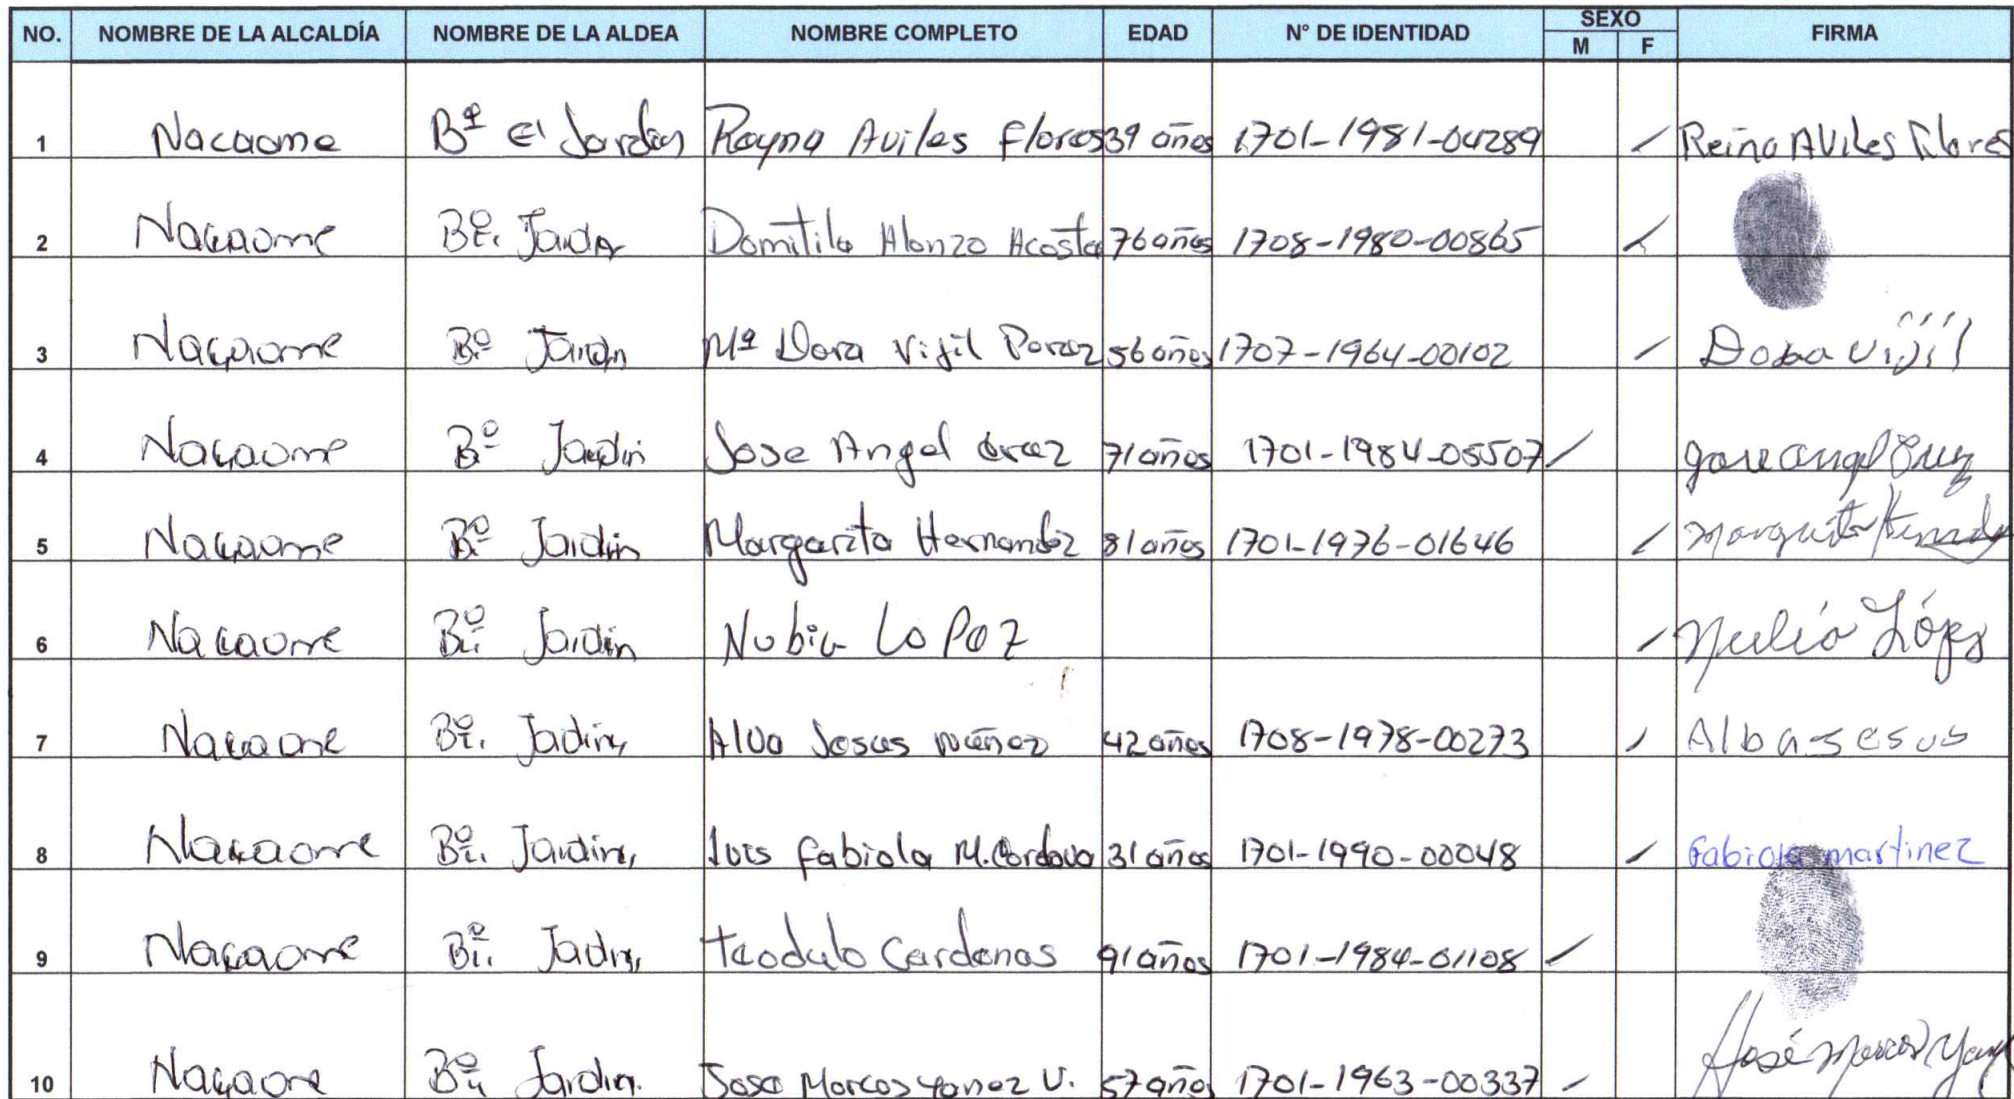 NO. NOMBRE DE LA ALCALDÍA NOMBRE DE LA ALDEA NOMBRE COMPLETO EDAD N° DE IDENTIDAD SEXO M F FIRMA
1 Nacaome Bº El Jardin Reyna Aviles Flores 39 años 1701-1981-04289 Reina Aviles Flores
2 Nacaome Bº. Jardin Domitila Alonzo Acosta 76 años 1708-1980-00865
3 Nacaome Bº Jardin Mª Dora Vijil Perez 56 años 1707-1964-00102 Dora Vijil
4 Nacaome Bº Jardin Jose Angel Cruz 71 años 1701-1984-05507 Jose Angel Cruz
5 Nacaome Bº Jardin Margarita Hernandez 81 años 1701-1976-01646 Margarita
6 Nacaome Bº Jardin Nubia Lopez López
7 Nacaome Bº. Jadin, Alva Jesus Nuñez 42 años 1708-1978-00273 Alba Jesus
8 Nacaome Bº. Jardin, Fabiola M. Cordova 31 años 1701-1990-00048 Fabiola martinez
9 Nacaome Bº. Jadin, Teodulo Cardenas 91 años 1701-1984-01108
10 Nacaome Bº Jardin. Jose Marcos Yanez V. 57 años 1701-1963-00337 José Marcos Yanez